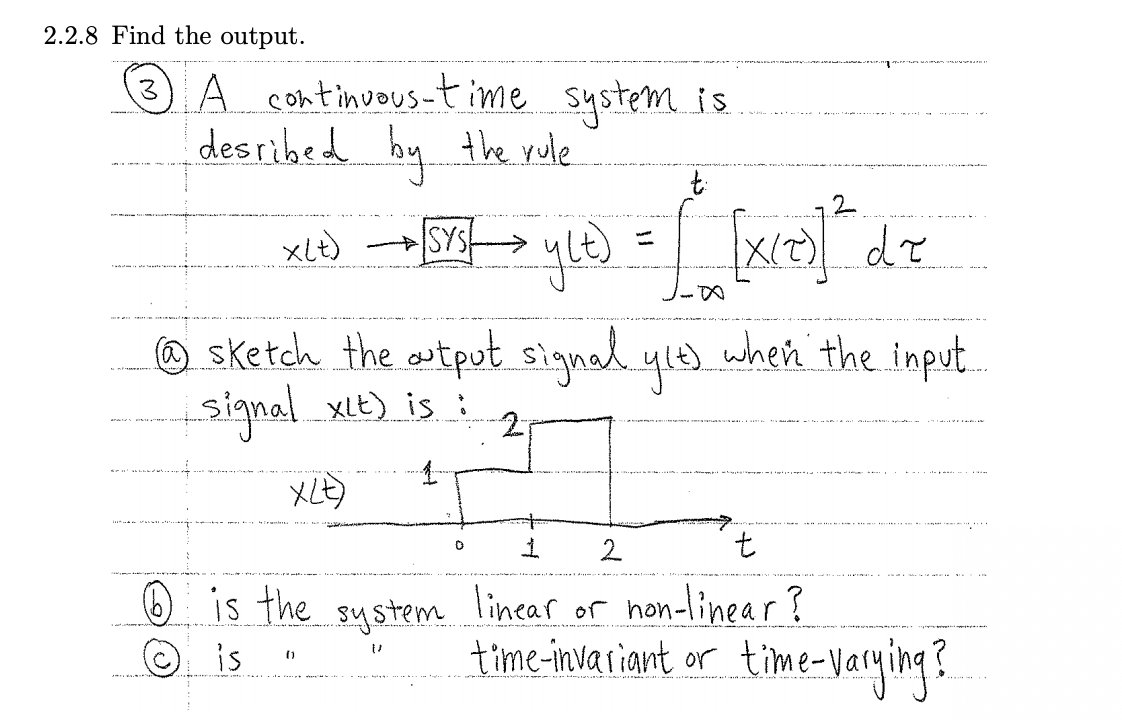 2.2.8 Find the output.
③ A continuous-time system is
desribed by the rule
x(t) → SYS → y(t) = ∫_{-∞}^{t} [x(τ)]² dτ
ⓐ sketch the output signal y(t) when the input
signal x(t) is :
2
1
x(t)
0 1 2 t
ⓑ is the system linear or non-linear?
ⓒ is " " time-invariant or time-varying?